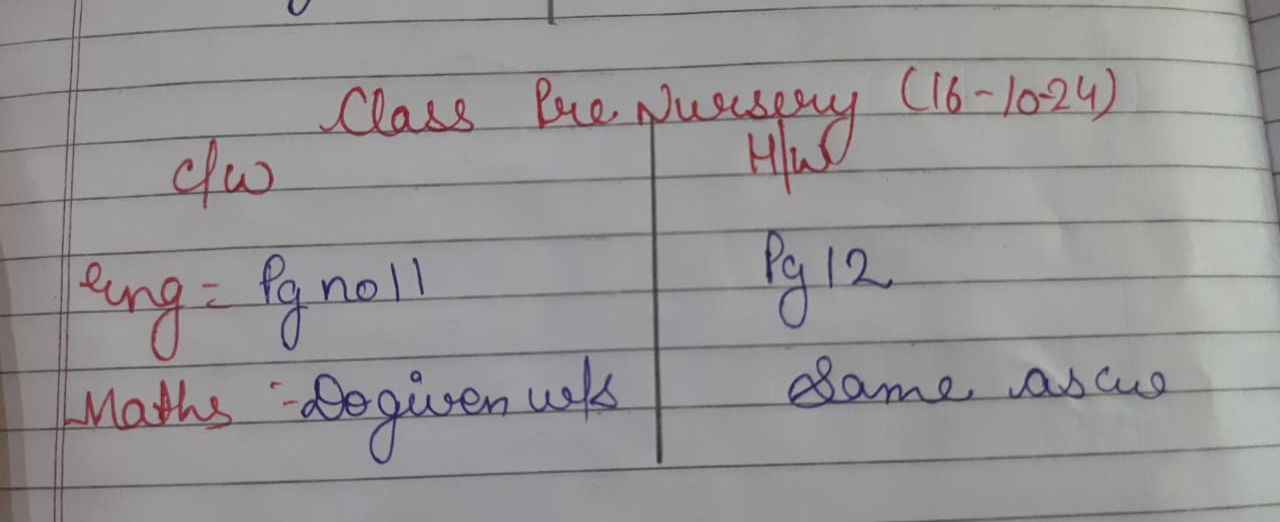 Class Pre Nursery (16-10-24)
C/w H/w
eng = Pg no 11 Pg 12
Maths :- Do given w/s Same as cw